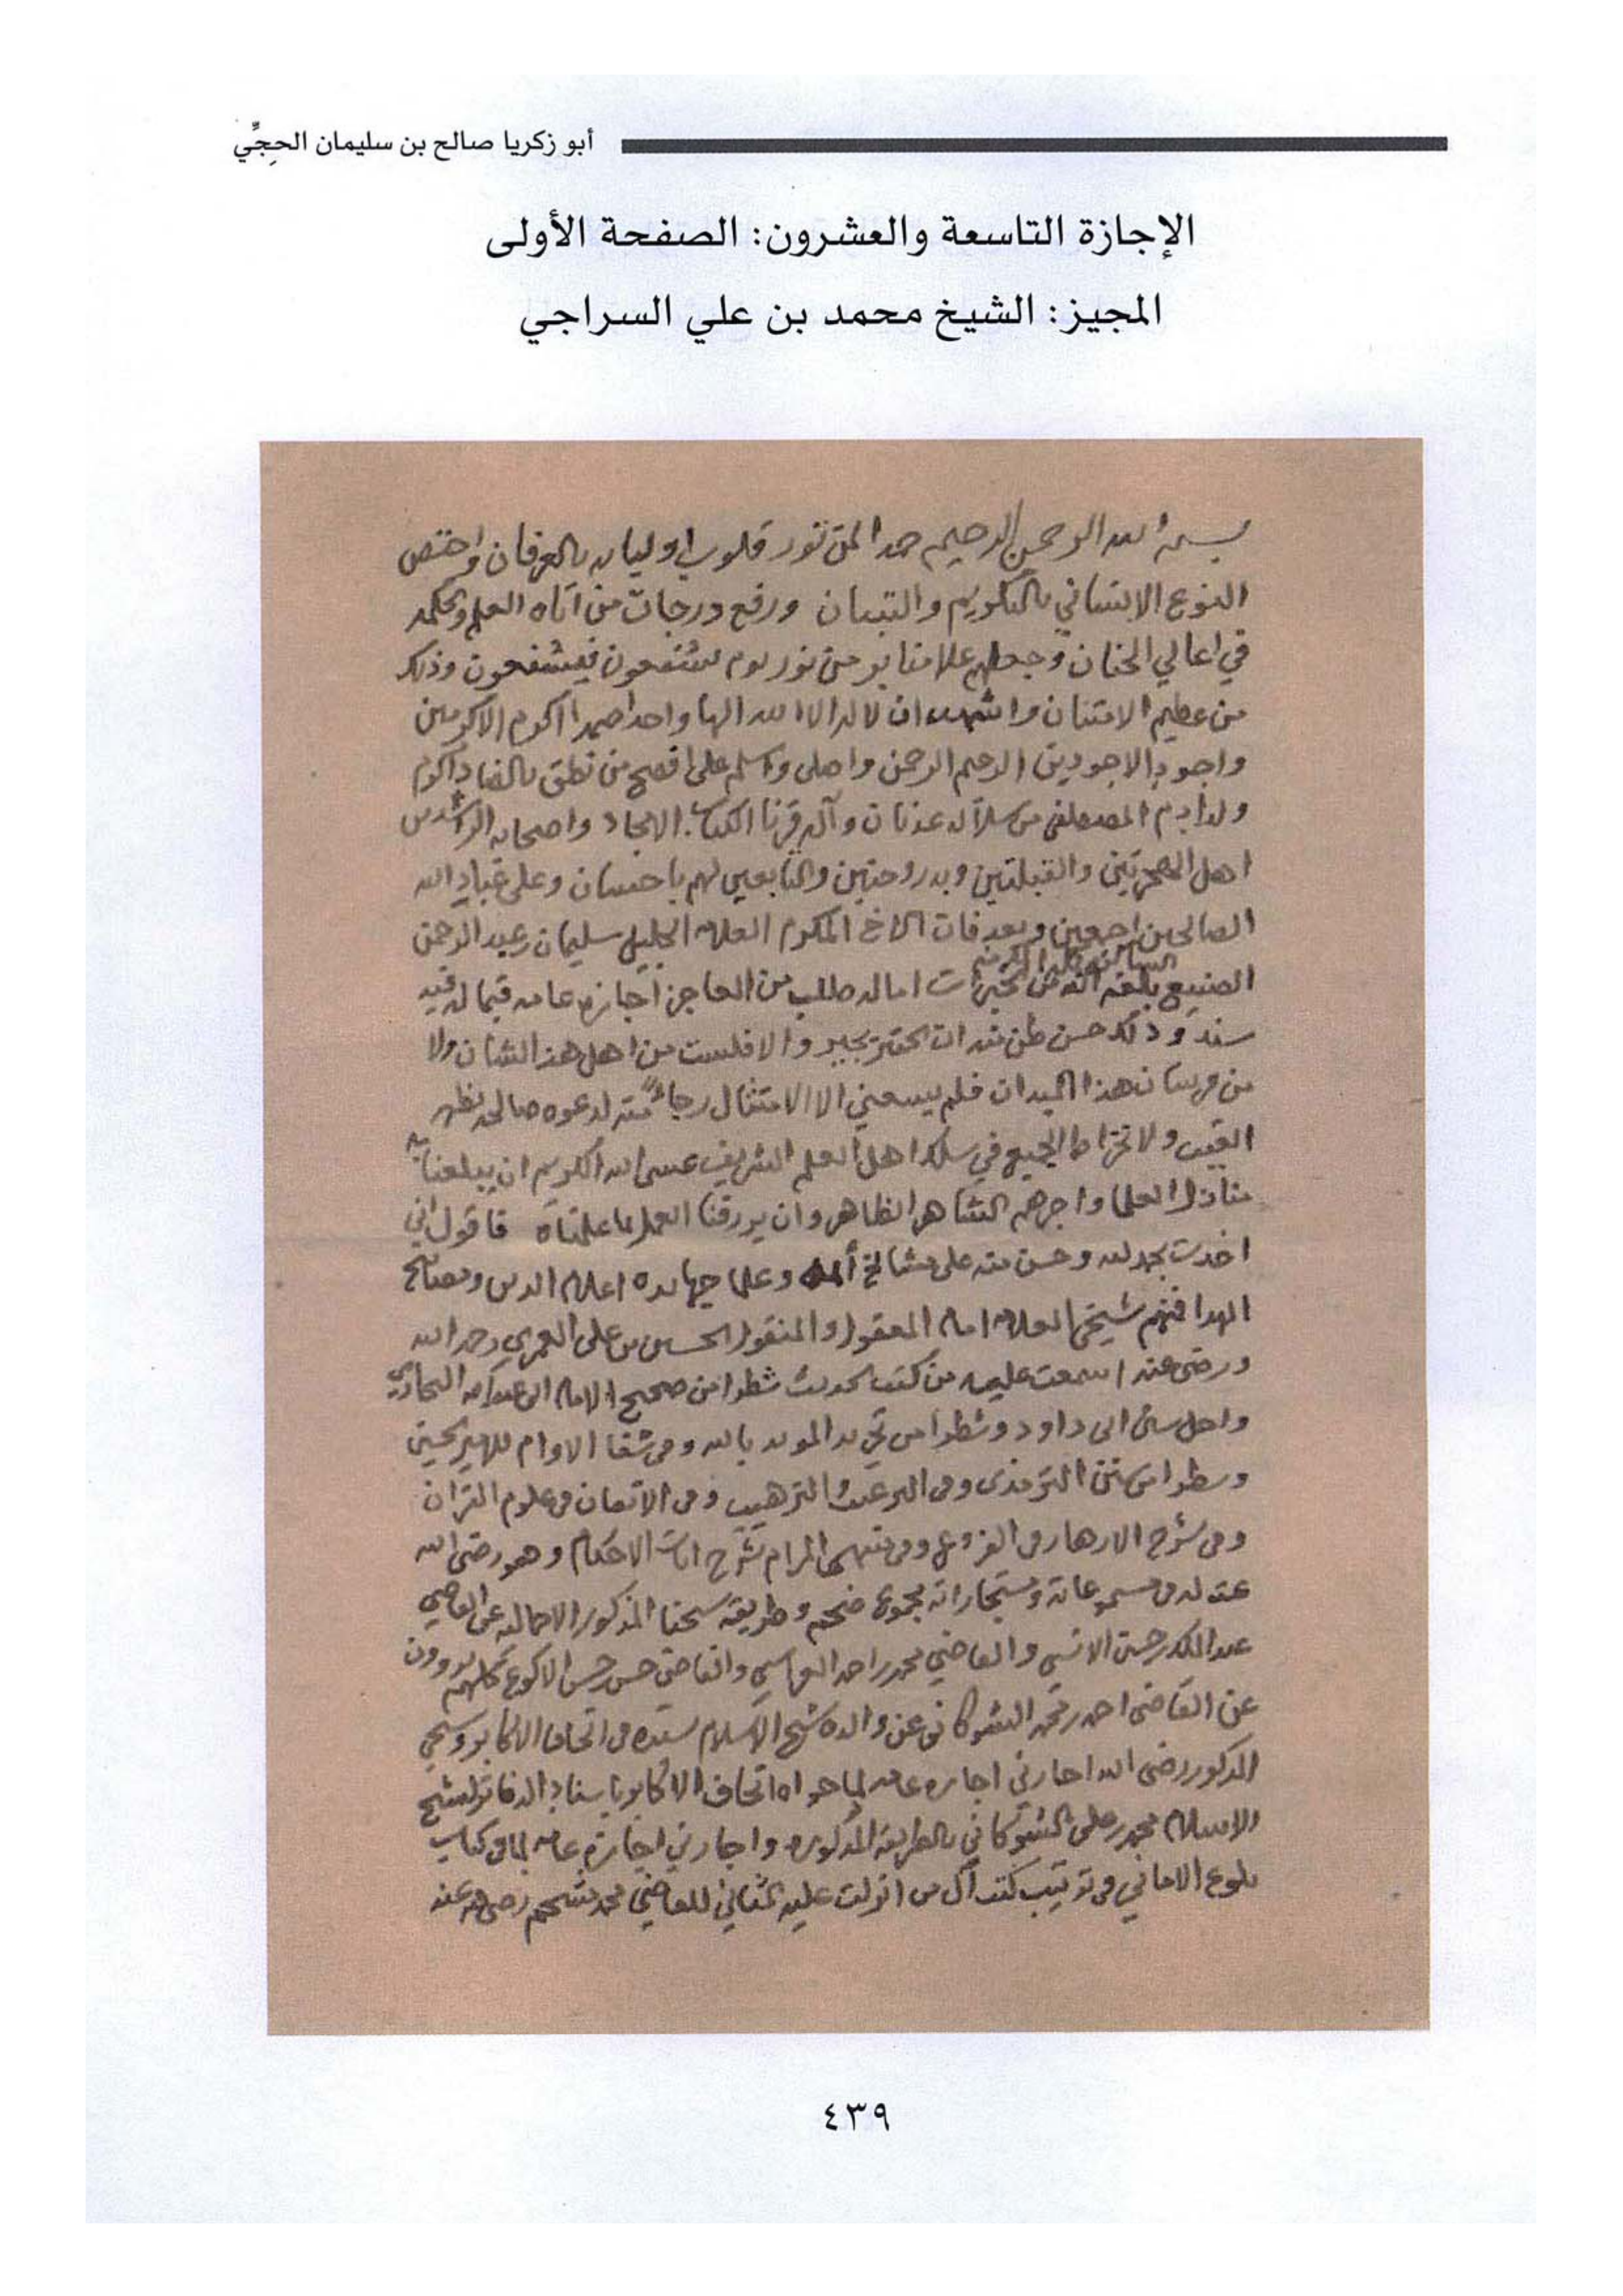 أبو زكريا صالح بن سليمان الحجِّي
الإجازة التاسعة والعشرون: الصفحة الأولى
المجيز: الشيخ محمد بن علي السراجي
بسم الله الرحمن الرحيم حمدا لمن نور قلوب اوليائه بالعرفان واختص
النوع الانساني بالتكريم والتبيان ورفع درجات من اتاه العلم والحكمه
في اعالي الجنان وجعلهم على منابر من نور يوم يشفعون فيشفعون وذلك
من عظيم الامتنان واشهد ان لا اله الا الله الها واحدا صمدا اكرم الاكرمين
واجود الاجودين الرحيم الرحمن واصلي واسلم على افصح من نطق بالضاد اكرم
ولد ادم المصطفى من سلالة عدنان وآله قرناء الكتاب الامجاد واصحابه الراشدين
اهل الهجرتين والقبلتين والتابعين لهم باحسان وعلى عباد الله
الصالحين اجمعين وبعد فان الاخ المكرم العلامه الجليل سليمان عبد الرحمن
الصنيع بلغه الله من الخيرات اماله طلب من العاجز اجازه عامه فيما له فيه
سند وذلك حسن ظن منه ان الحقير يجيز والا فلست من اهل هذا الشان ولا
من فرسان هذا الميدان فلم يسعني الا الامتثال رجاءً منه لدعوه صالحه بظهر
الغيب ولانخراط الجميع في سلك اهل العلم الشريف عسى الله الكريم ان يبلغنا به
منازل العلما واجرهم الظاهر وان يرزقنا العمل بما علمناه فاقول اني
اخذت بحمد لله وحسن منه على مشائخ وعلما جهابذه اعلام الدين ومصابيح
الهدا فمنهم شيخي العلامه امام المعقول والمنقول الحسين بن علي العمري رحمه الله
ورضي عنه اسمعت عليه من كتب الحديث شطرا من صحيح الامام ابي عبدالله البخاري
واجل سنن ابي داود وشطرا من تجريد المويد بالله وفي شفا الاوام للامير الحسين
وشطرا من سنن الترمذي وفي الترغيب والترهيب وفي الاتقان في علوم القران
وفي شرح الازهار في الفروع وفي منتهى المرام شرح ايات الاحكام وهو رضي الله
عنه له في مسموعاته ومستجازاته مجموع ضخم وطريقه شيخنا المذكور الاجماليه عن القاضي
عبدالملك حسين الانسي والقاضي محمد احمد العراسي والقاضي حسن الاكوع كلهم يروون
عن القاضي احمد محمد الشوكاني عن والده شيخ الاسلام بسنده في اتحاف الاكابر وشيخي
المذكور رضي الله اجازني اجازه عامه لما حواه اتحاف الاكابر باسناد الدفاتر لشيخ
الاسلام محمد علي الشوكاني بالطريقه المذكوره واجازني اجازه عامه لما في كتاب
بلوغ الاماني في ترتيب كتب آل من انزلت عليه المثاني للقاضي محمد مشحم رضي الله عنه
٤٣٩